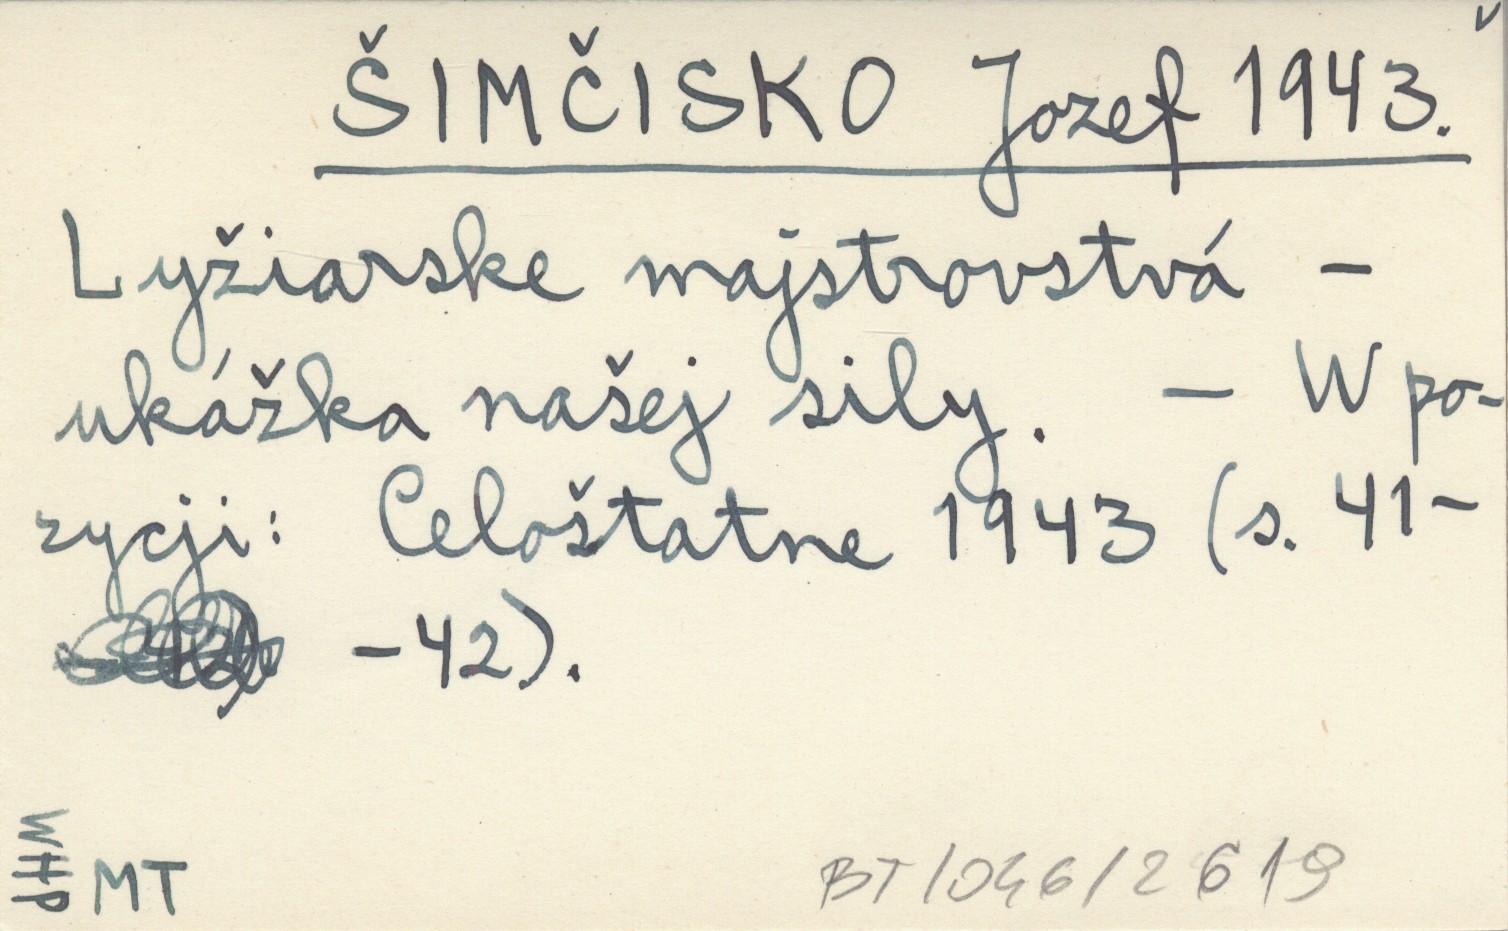 ŠIMČISKO Jozef 1943.
Lyžiarske majstrovstvá -
ukážka našej sily. - W po-
zycji: Celoštatne 1943 (s. 41-
-42).
WHP
MT
BT/046/2619